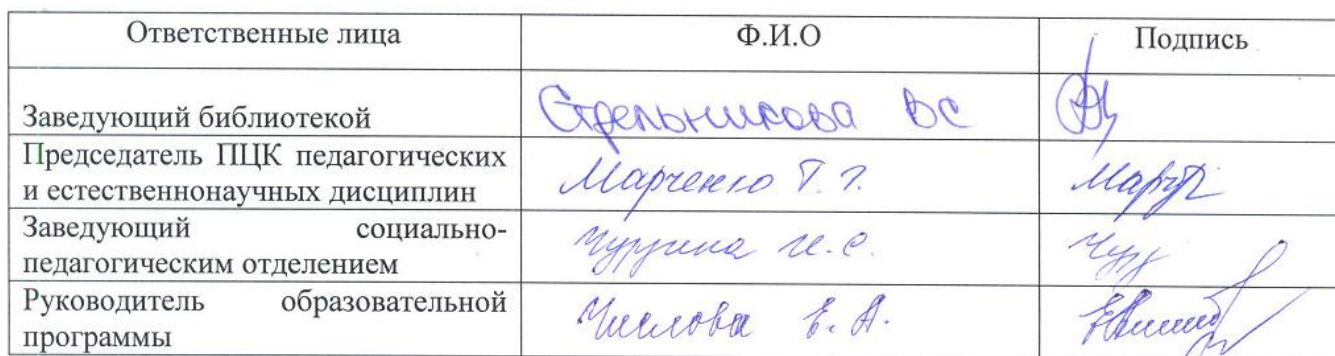 Ответственные лица Ф.И.О Подпись
Заведующий библиотекой Стрельникова ВС
Председатель ПЦК педагогических
и естественнонаучных дисциплин Марченко Т. Г.
Заведующий социально-
педагогическим отделением И.С.
Руководитель образовательной
программы Числова Е. А.